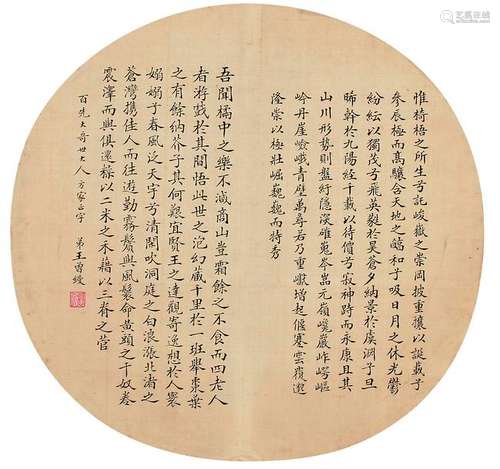 惟椅梧之所生兮託峻嶽之崇岡披重壤以誕載兮
參辰極而高驤含天地之醇和兮吸日月之休光鬱
紛紜以獨茂兮飛英蕤於昊蒼夕納景於虞淵兮旦
晞幹於九陽經千載以待價兮寂神跱而永康且其
山川形勢則盤紆隱深磪嵬岑嵓亢嶺巉巖岞崿嶇
崟丹崖嶮巇青壁萬尋若乃重巘增起偃蹇雲覆邈
隆崇以極壯崛巍巍而特秀
吾聞橘中之樂不減商山豈霜餘之不食而四老人
者游戲於其間悟此世之泡幻藏千里於一班舉棗葉
之有餘納芥子其何艱宜賢王之達觀寄逸想於人寰
嫋嫋兮春風泛天宇兮清閑吹洞庭之白浪漲北渚之
蒼灣攜佳人而往遊勤霧鬢與風鬟命黃頭之千奴卷
震澤而與俱還糅以二米之禾藉以三脊之菅
百先大哥世大人方家正字 弟王曾綬